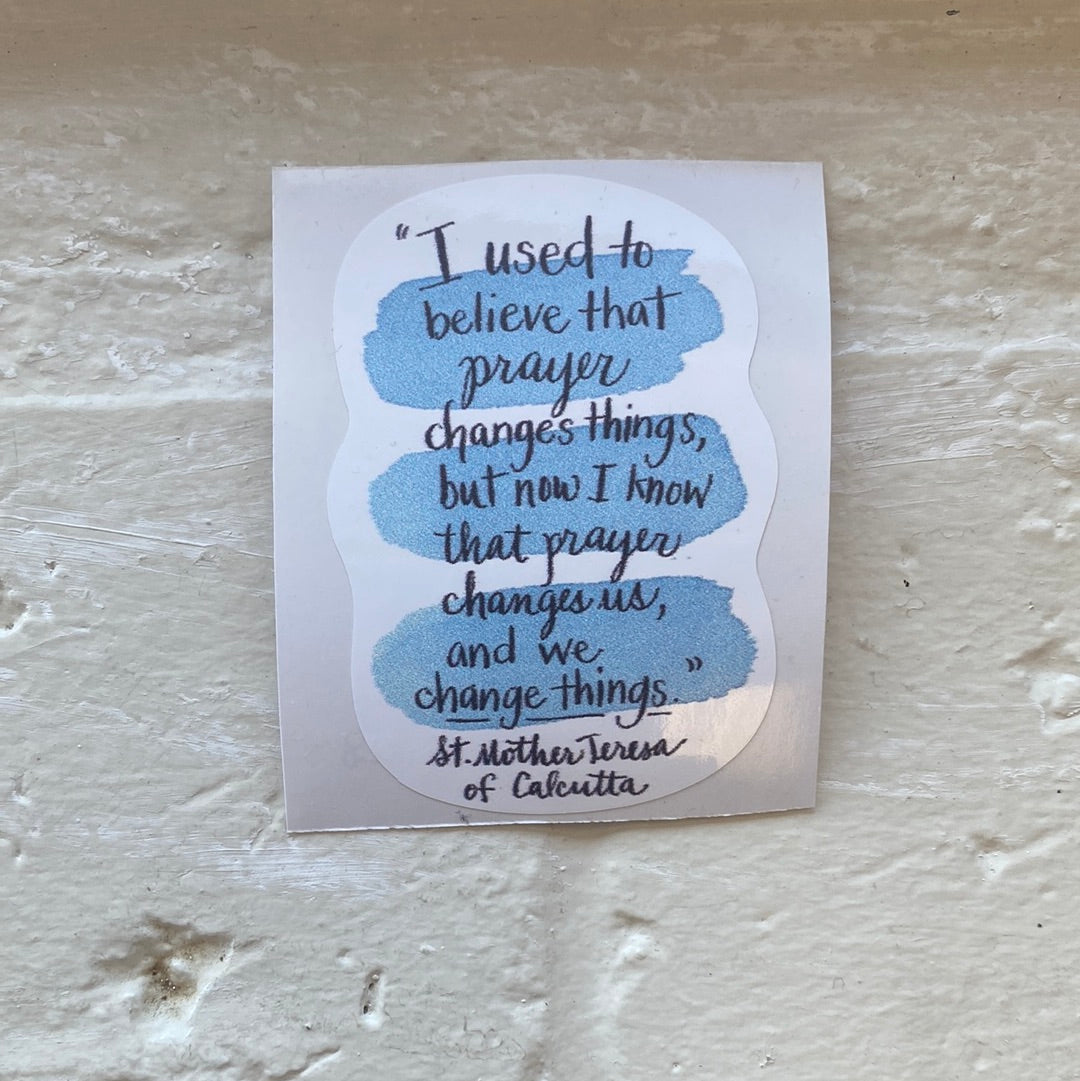 “I used to
believe that
prayer
changes things,
but now I know
that prayer
changes us,
and we
change things.”
St. Mother Teresa
of Calcutta